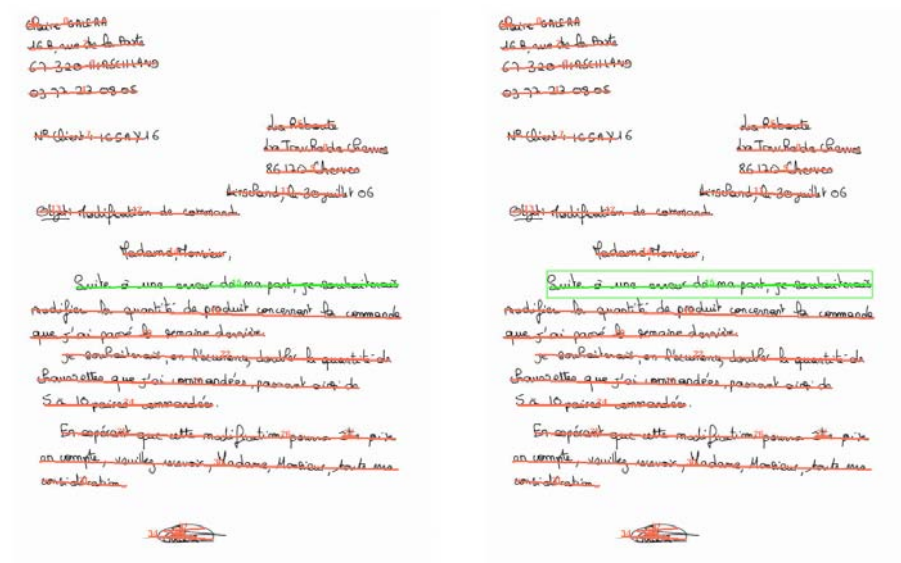 Claire GALERA
rue de la Poste
67 320
08 05
N° Client :
La
86170 Cherves
le 30 juillet 06
Objet: Modification de commande
Madame, Monsieur,
Suite à une erreur de ma part, je souhaiterais
modifier la quantité de produit concernant la commande
que j'ai passé la semaine dernière.
je souhaiterais, en doubler la quantité de
chaussettes que j'ai commandées, passant ainsi de
5 à 10 paires commandées.
En espérant que cette modification pourra être prise
en compte, veuillez recevoir, Madame, Monsieur, toute ma
considération.
Claire GALERA
rue de la Poste
67 320
08 05
N° Client :
La
86170 Cherves
le 30 juillet 06
Objet: Modification de commande
Madame, Monsieur,
Suite à une erreur de ma part, je souhaiterais
modifier la quantité de produit concernant la commande
que j'ai passé la semaine dernière.
je souhaiterais, en doubler la quantité de
chaussettes que j'ai commandées, passant ainsi de
5 à 10 paires commandées.
En espérant que cette modification pourra être prise
en compte, veuillez recevoir, Madame, Monsieur, toute ma
considération.